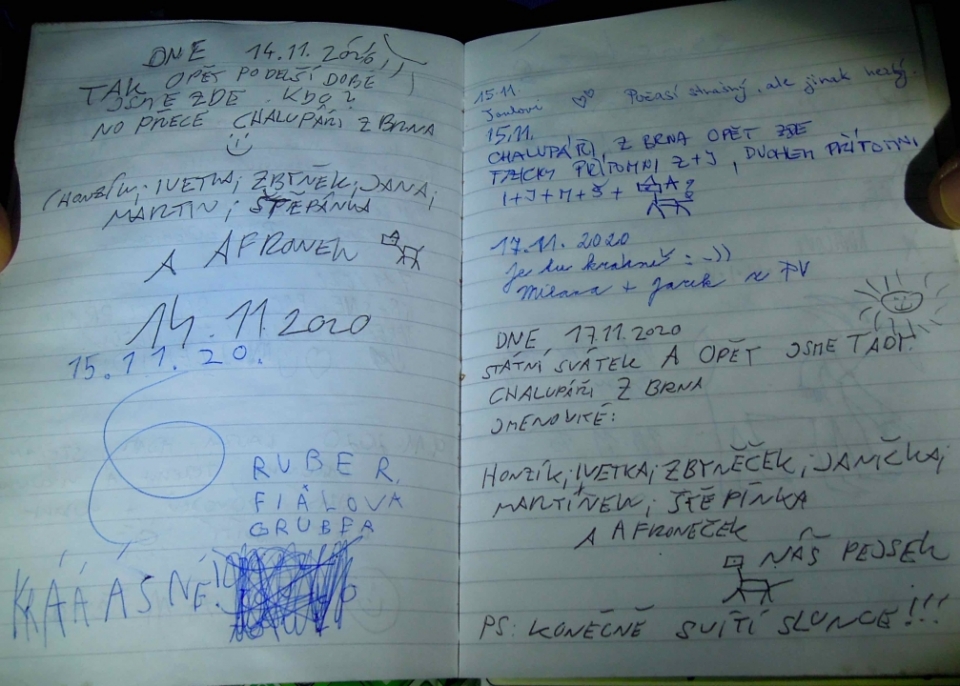 DNE 14.11. 2020
TAK OPĚT PO DELŠÍ DOBĚ
JSME ZDE. KDO?
NO PŘECE CHALUPÁŘI Z BRNA
(HONZÍK; IVETKA; ZBYNĚK; JANA;
MARTIN; ŠTĚPÁNKA
A AFRONEK
14.11.2020
15.11.20.
RUBER,
FIALOVA
GRUBEA
KRÁÁÁSNÉ!
15.11.
Počasí strašný, ale jinak hezký.
15.11.
CHALUPÁŘI Z BRNA OPĚT ZDE
FYZICKY PŘÍTOMNI Z+J, DUCHEM PŘÍTOMNI
I+J+M+Š+ A
17.11. 2020
Je tu krásně :-))
Milena + Jarek z PV
DNE, 17.11.2020
STÁTNÍ SVÁTEK A OPĚT JSME TADY.
CHALUPÁŘI Z BRNA
JMENOVITĚ:
HONZÍK; IVETKA; ZBYNĚČEK; JANIČKA;
MARTÍNEK; ŠTĚPÍNKA
A AFRONEČEK
NÁŠ PEJSEK
PS: KONEČNĚ SVÍTÍ SLUNCE!!!